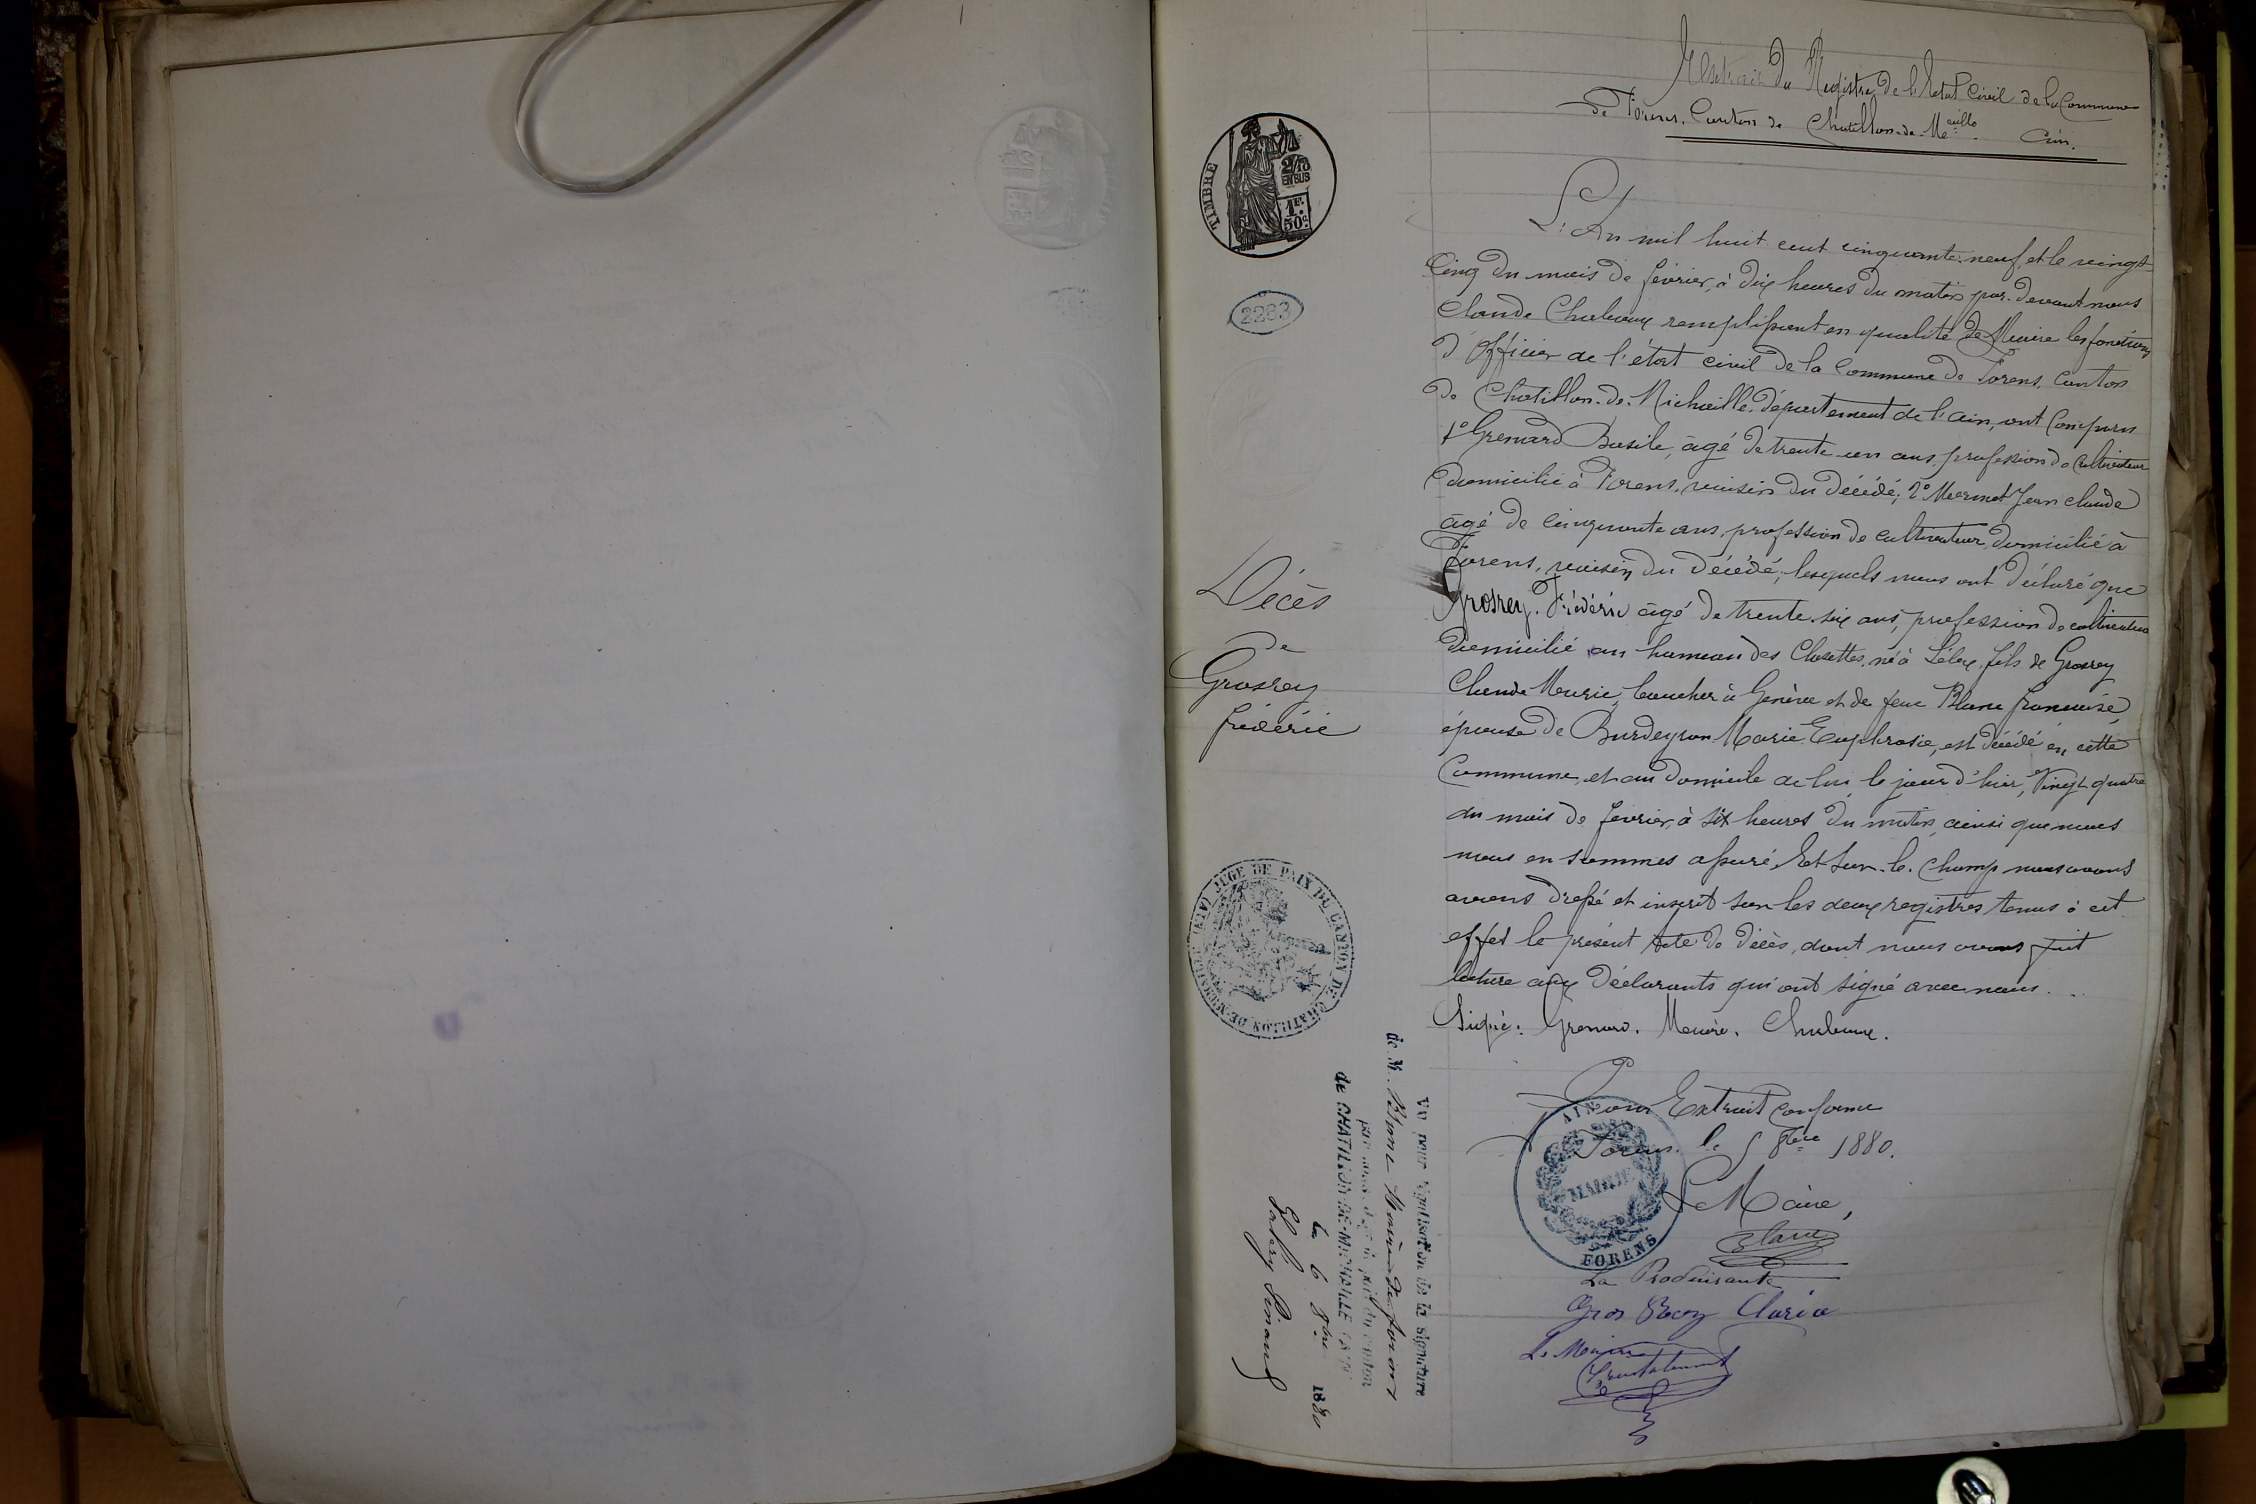 Extrait du Registre de l'Etat Civil de la Commune
de Forens. Canton de Chatillon-de-Meaille Ain.
TIMBRE
2/10
EN SUS
1F.
50c
2283
L'An mil huit cent cinquante-neuf, et le vingt-
cinq du mois de février, à dix heures du matin par-devant nous
Claude Chaboux remplissant en qualité de Maire les fonctions
d'officier de l'état civil de la Commune de Forens. Canton
de Chatillon-de-Michaille, département de l'ain, ont comparu
1º Grenard Basile, âgé de trente un ans, profession de cultivateur
domicilié à Forens, voisin du décédé; 2º Mermet Jean Claude
âgé de cinquante ans, profession de cultivateur domicilié à
Forens, voisin du décédé; lesquels nous ont déclaré que
Grosrey Frédéric âgé de trente six ans, profession de cultivateur
domicilié au hameau des Closettes, né à Lélex, fils de Grosrey
Claude Marie, boucher à Genève et de feue Blanc françoise,
épouse de Burdeyron Marie Euphrosie, est décédé en cette
Commune, et au domicile de lui, le jour d'hier, vingt quatre
du mois de février, à six heures du matin, ainsi que nous
nous en sommes assuré, Et sur-le-champ nous avons
avons dressé et inscrit sur les deux registres tenus à cet
effet le présent acte de décès, dont nous avons fait
lecture aux déclarants qui ont signé avec nous.
Signé: Grenard. Chaboux.
Décès
de
Grosrey
frédéric
JUGE DE PAIX DU CANTON DE CHATILLON-DE-MICHAILLE (AIN)
Pour Extrait conforme
Forens le 5 8bre 1880.
Le Maire,
Blanc
AIN
MAIRIE
FORENS
La Produisante
Gros Rey Claria
Vu pour légalisation de la signature
de M. Blanc Maire de forens
par nous Juge de paix du canton
de CHATILLON-DE-MICHAILLE (AIN)
Le 6 8bre 1880